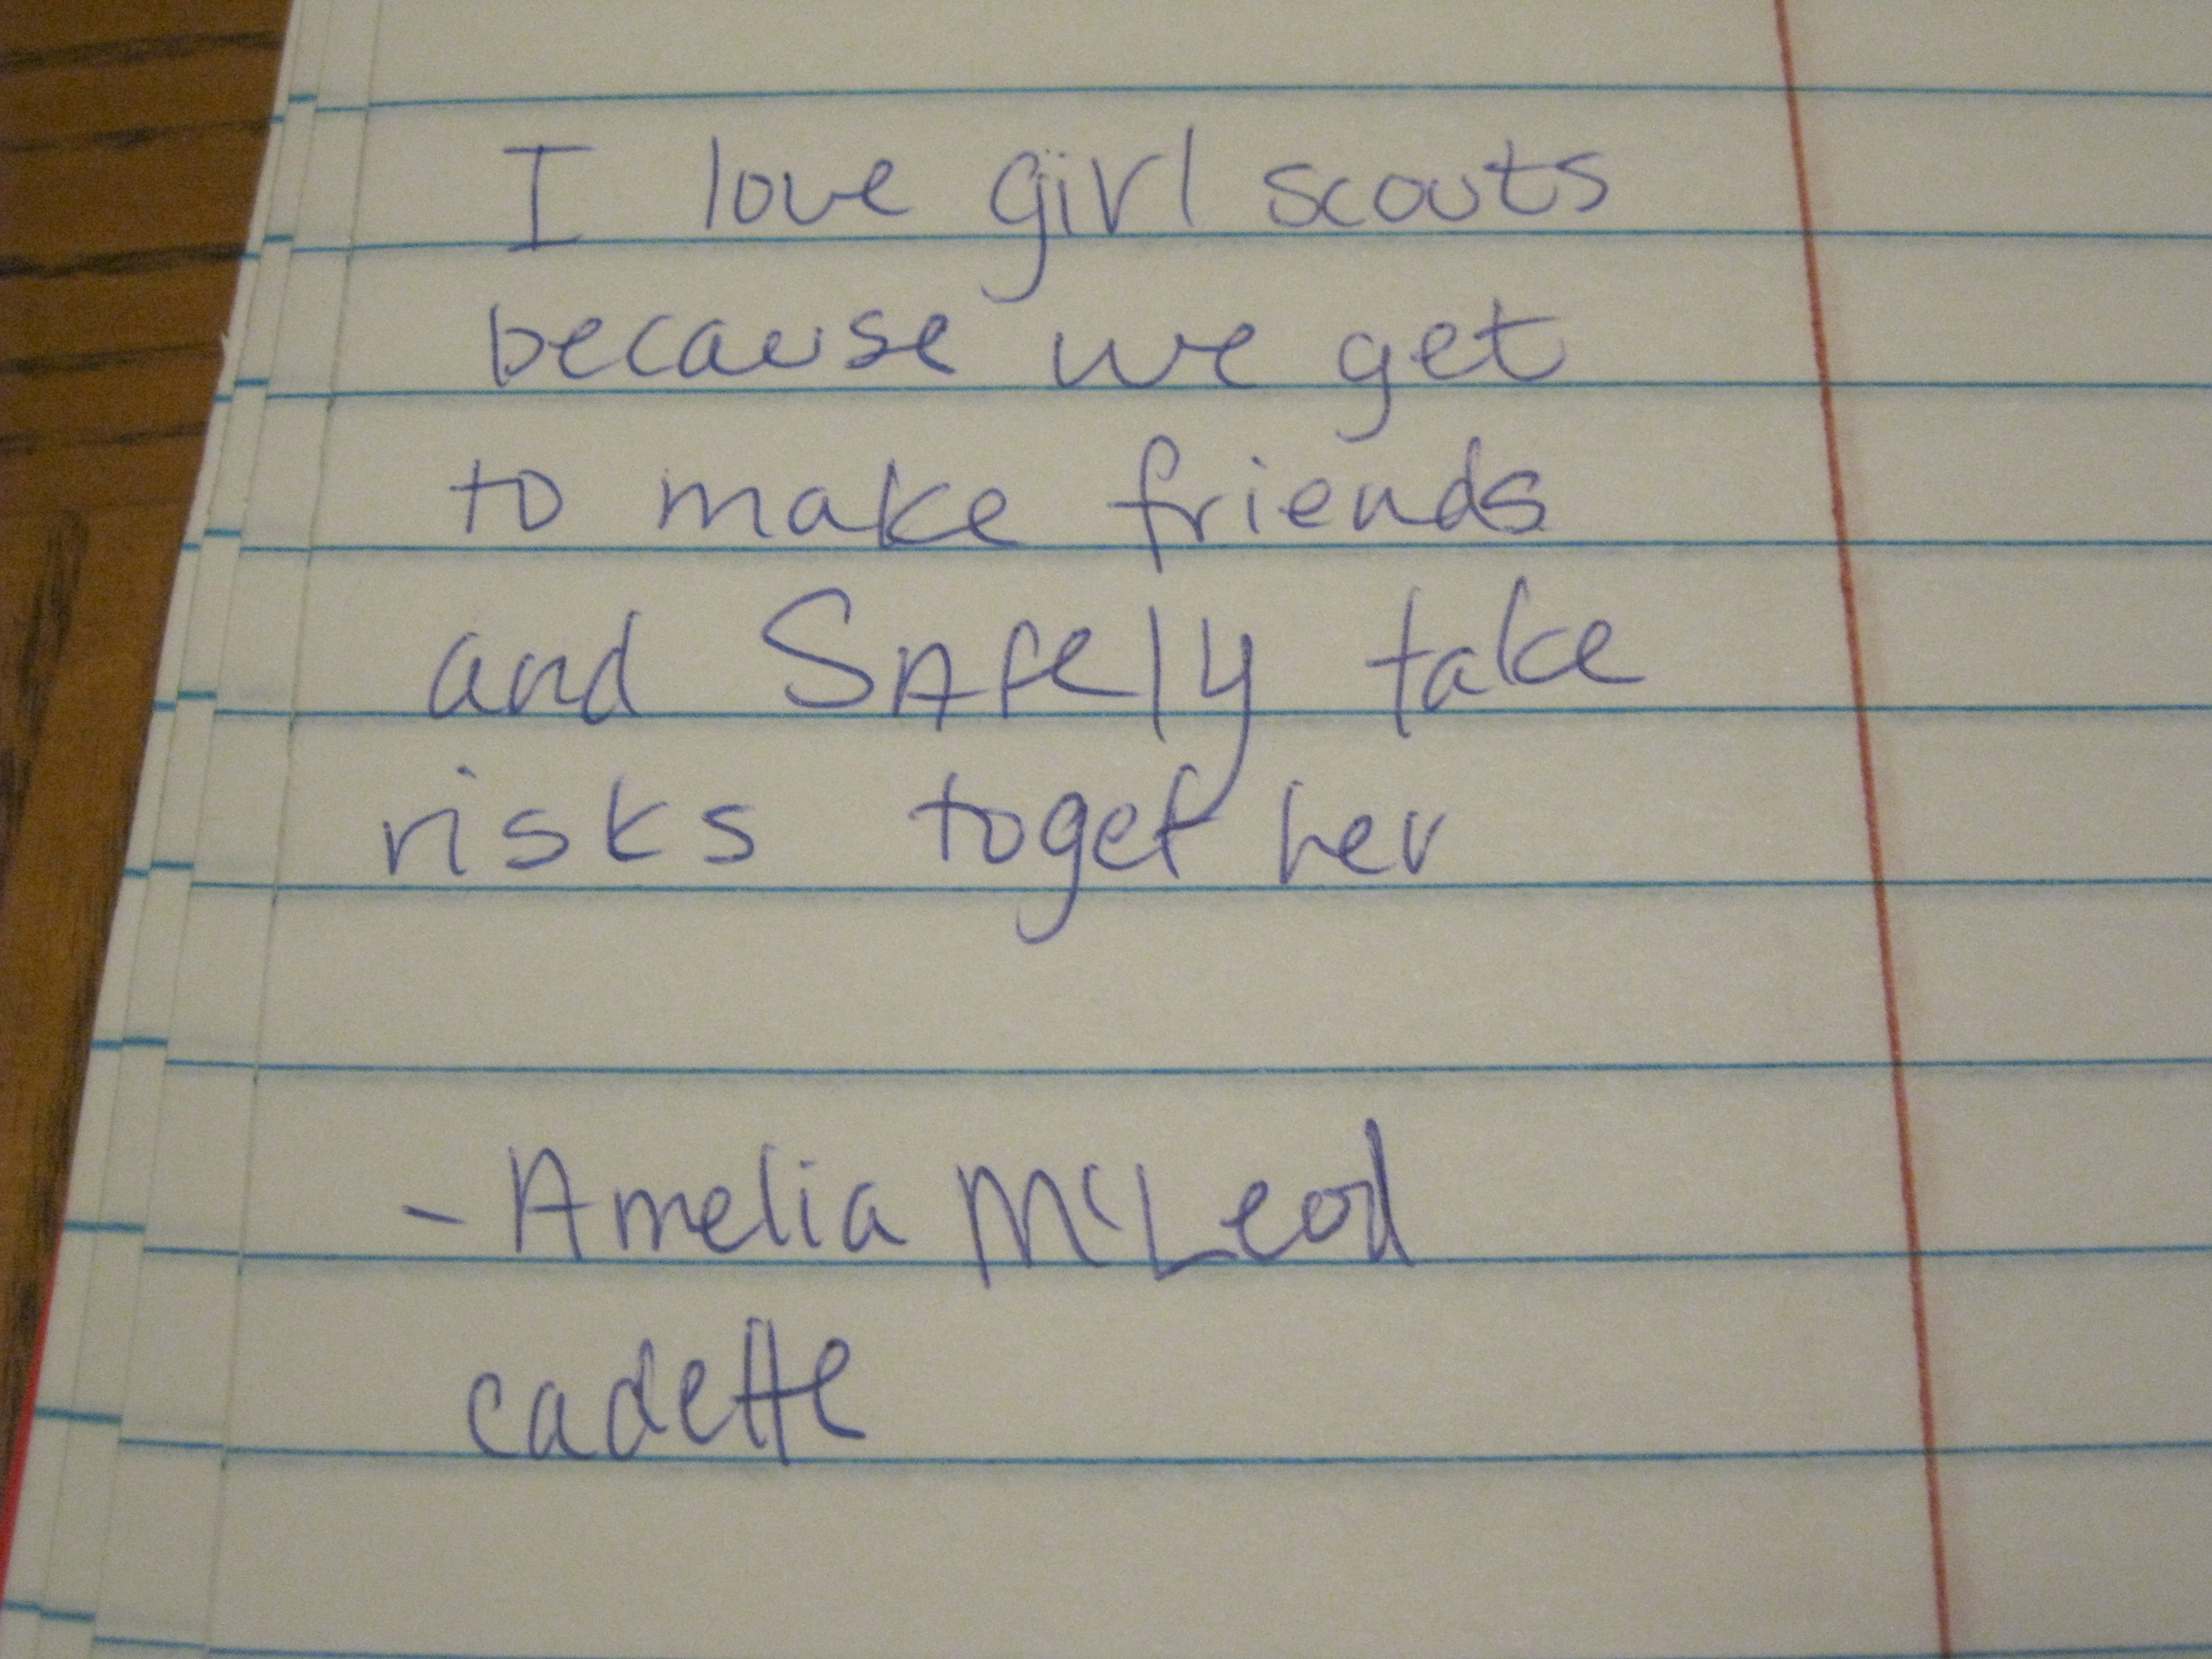 I love girl scouts
because we get
to make friends
and SAFely take
risks together
- Amelia McLeod
cadette